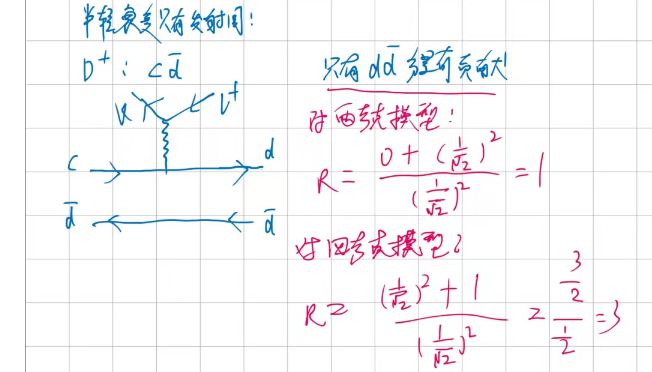 半轻衰变只有发射图:
D⁺: c d̄
ν l⁺
c d
d̄ d̄
只有 dd̄ 组有贡献
对两夸克模型:
R = (0 + (1/√2)²) / (1/√2)² = 1
对四夸克模型:
R = ((1/√2)² + 1) / (1/√2)² = (3/2) / (1/2) = 3